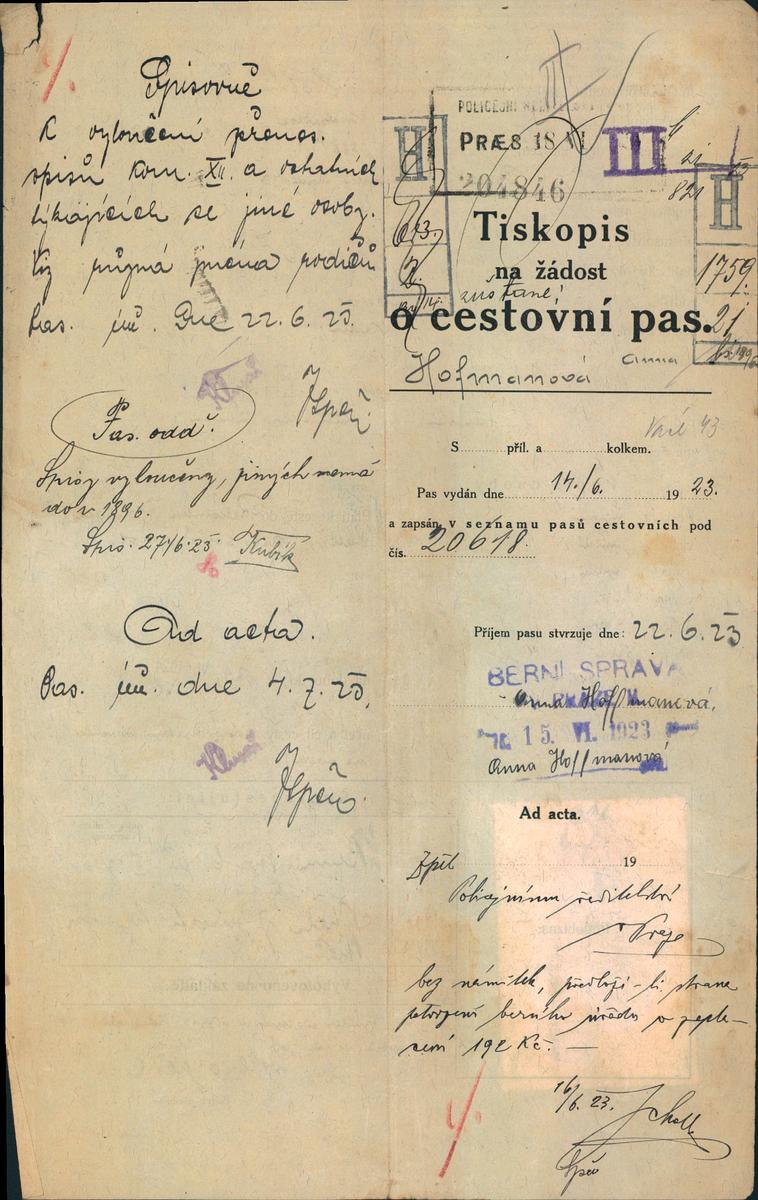 Spisovně
k vyloučení přenos.
spisů kom. XII. a ostatních
týkajících se jiné osoby.
Viz různá jména rodičů
Pas. Dne 22.6.23.
Pas. odd.
Spisy vyloučeny, jiných nemá
do r 1896.
Spis. 27/6.23. Kubík
Ad acta.
Pas. dne 4.7.23.
PRÆS 18 VI
204846
III
H
H
1759.
21
Tiskopis
na žádost
zůstane!
o cestovní pas.
Hofmanová Anna
S příl. a kolkem.
Pas vydán dne 14./6. 1923.
a zapsán v seznamu pasů cestovních pod
čís. 20618.
Příjem pasu stvrzuje dne: 22.6.23
BERNÍ SPRÁVA
Anna Hoffmanová,
15. VI. 1923
Anna Hoffmanová
Ad acta.
Zpět 19
Policejnímu ředitelství
v Praze
bez námitek, předloží-li strana
potvrzení berního úřadu o zapla-
cení 192 Kč. —
16/6. 23.